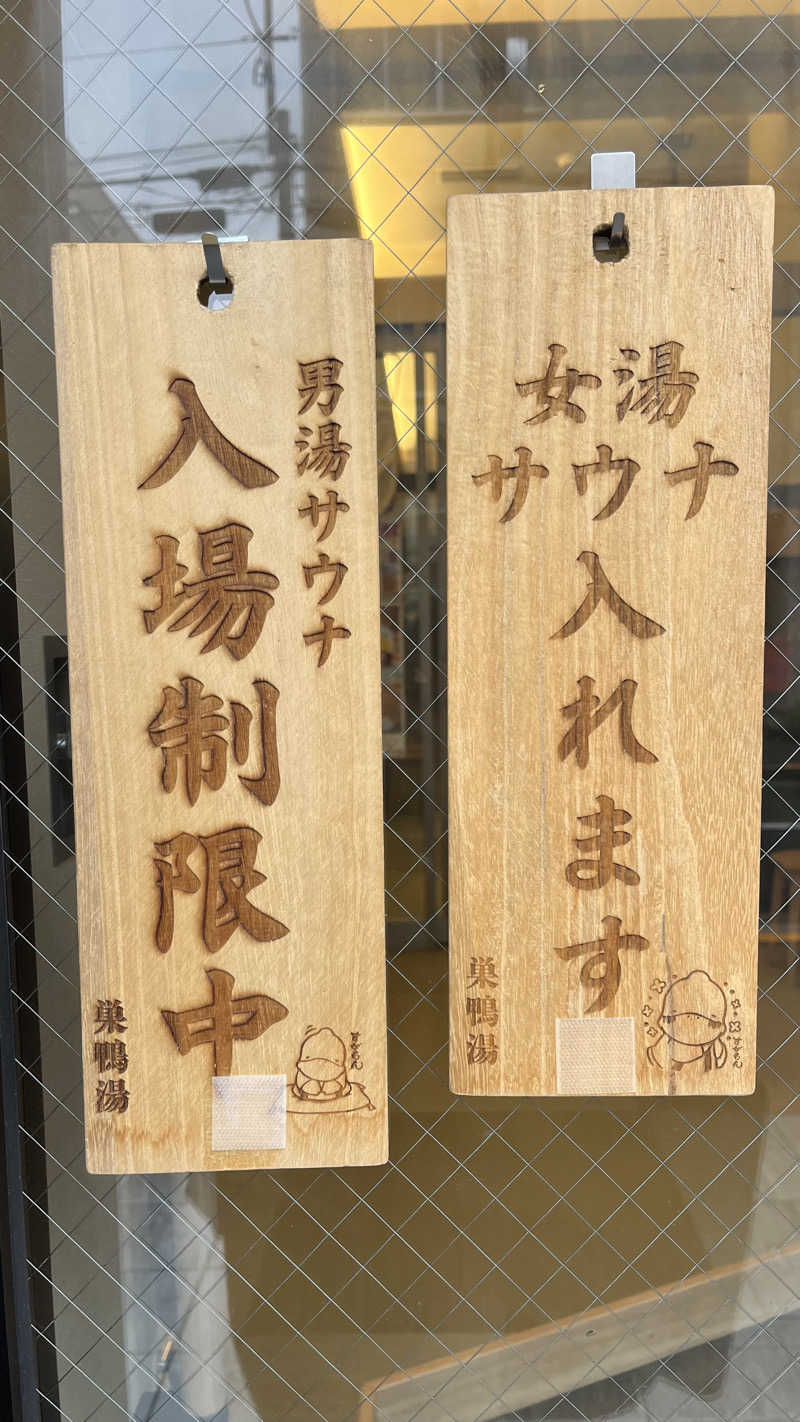 男湯サウナ
入場制限中
巣鴨湯
すがもん
女湯
サウナ
入れます
巣鴨湯